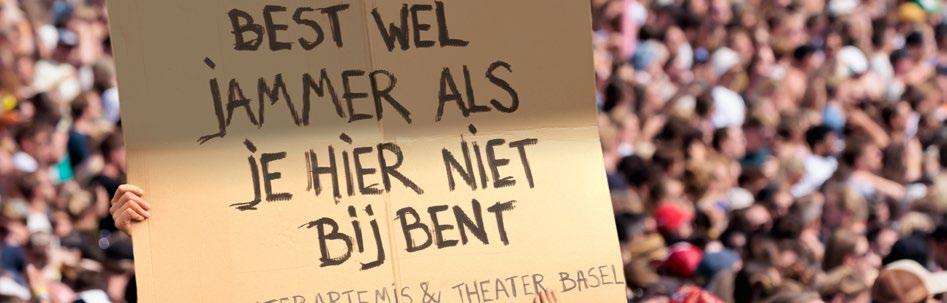 BEST WEL
JAMMER ALS
JE HIER NIET
BIJ BENT
TERARTEMIS & THEATER BASEL